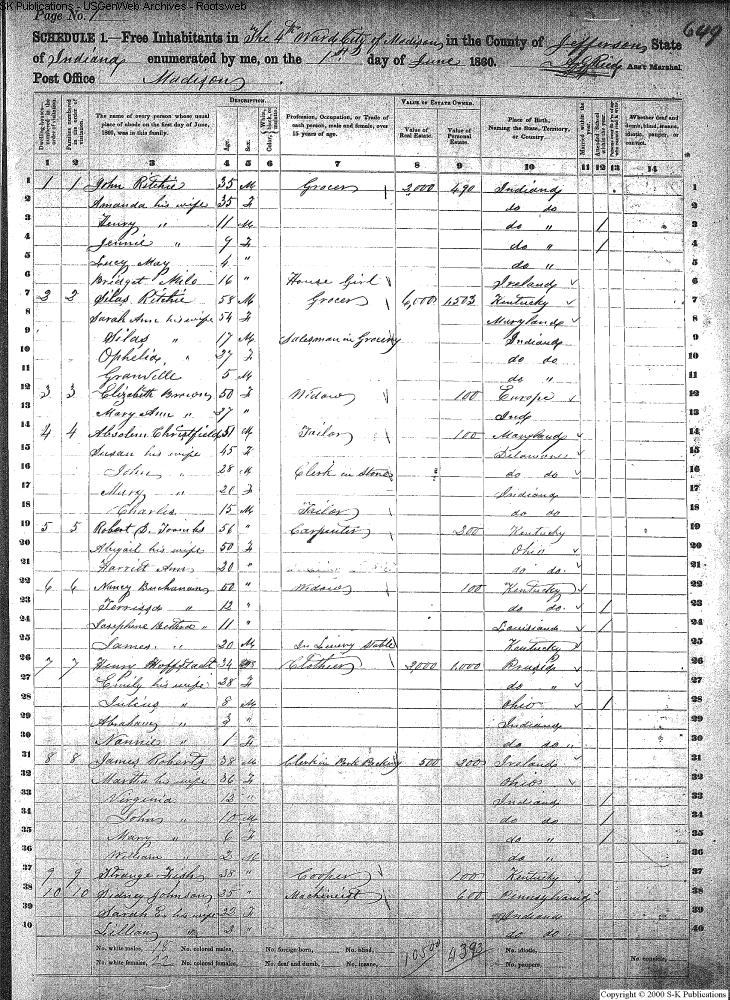 S-K Publications - USGenWeb Archives - Rootsweb
Page No. 1
649
SCHEDULE 1.—Free Inhabitants in The 4th Ward City of Madison in the County of Jefferson State
of Indiana enumerated by me, on the 1st day of June 1860. Ass't Marshal
Post Office Madison
Dwelling-houses—numbered in the order of visitation.
Families numbered in the order of visitation.
The name of every person whose usual place of abode on the first day of June, 1860, was in this family.
DESCRIPTION.
Age.
Sex.
Color, White, black, or mulatto.
Profession, Occupation, or Trade of each person, male and female, over 15 years of age.
VALUE OF ESTATE OWNED.
Value of Real Estate.
Value of Personal Estate.
Place of Birth, Naming the State, Territory, or Country.
Married within the year.
Attended School within the year.
Whether deaf and dumb, blind, insane, idiotic, pauper, or convict.
1 2 3 4 5 6 7 8 9 10 11 12 13 14
1 1 1 John Ritchie 35 M Grocer 2,000 490 Indiana 1
2 Amanda his wife 35 F do do 2
3 Henry " 11 M do " / 3
4 Jennie " 9 F do " / 4
5 Lucy May 4 " do " 5
6 Bridget Milo 16 " House Girl Ireland 6
7 2 2 Silas Ritchie 58 M Grocer 6,000 1,503 Kentucky 7
8 Sarah Ann his wife 54 F Maryland 8
9 Silas " 17 M Salesman in Grocery Indiana 9
10 Ophelia " 27 F do do 10
11 Granville 5 M do " 11
12 3 3 Elizabeth Brown 50 F Widow 100 Europe 12
13 Mary Ann " 27 " Ind 13
14 4 4 Absolem Christfield 51 M Tailor 100 Maryland 14
15 Susan his wife 45 F Delaware 15
16 John 28 M Clerk in Store do do 16
17 Mary " 21 F Indiana 17
18 Charlie 15 M Tailor do do 18
19 5 5 Robert D. 56 " Carpenter 200 Kentucky 19
20 Abigail his wife 50 F Ohio 20
21 Harriet Ann 20 " do do 21
22 6 6 Nancy Buchanan 50 " Widow 100 Kentucky 22
23 " 12 " do do / 23
24 Josephine " 11 " Louisiana / 24
25 James " 20 M In Livery Stable Kentucky 25
26 7 7 Henry Hoffstadt 34 Clothier 2,000 1,000 Prussia 26
27 Emily his wife 28 F do " 27
28 Julius " 8 M Ohio / 28
29 Abraham " 3 " Indiana 29
30 Nannie " 1 F do do " 30
31 8 8 James Roberts 38 M Clerk in Pork Packing 500 200 Ireland 31
32 Martha his wife 36 F Ohio 32
33 Virginia 12 " Indiana / 33
34 John " 10 M do do / 34
35 Mary " 6 F do " / 35
36 William " 2 M do " 36
37 9 9 Strange Fish 38 " Cooper 100 Kentucky 37
38 10 10 Sidney Johnson 25 " Machinist 600 Pennsylvania 38
39 Sarah E. his wife 22 F Indiana 39
40 Lillian " 2 " do do 40
No. white males, 18 No. colored males, No. foreign born, No. blind, 10500 4393 No. idiotic,
No. white females, 22 No. colored females, No. deaf and dumb, No. insane, No. paupers, No. convicts,
Copyright © 2000 S-K Publications